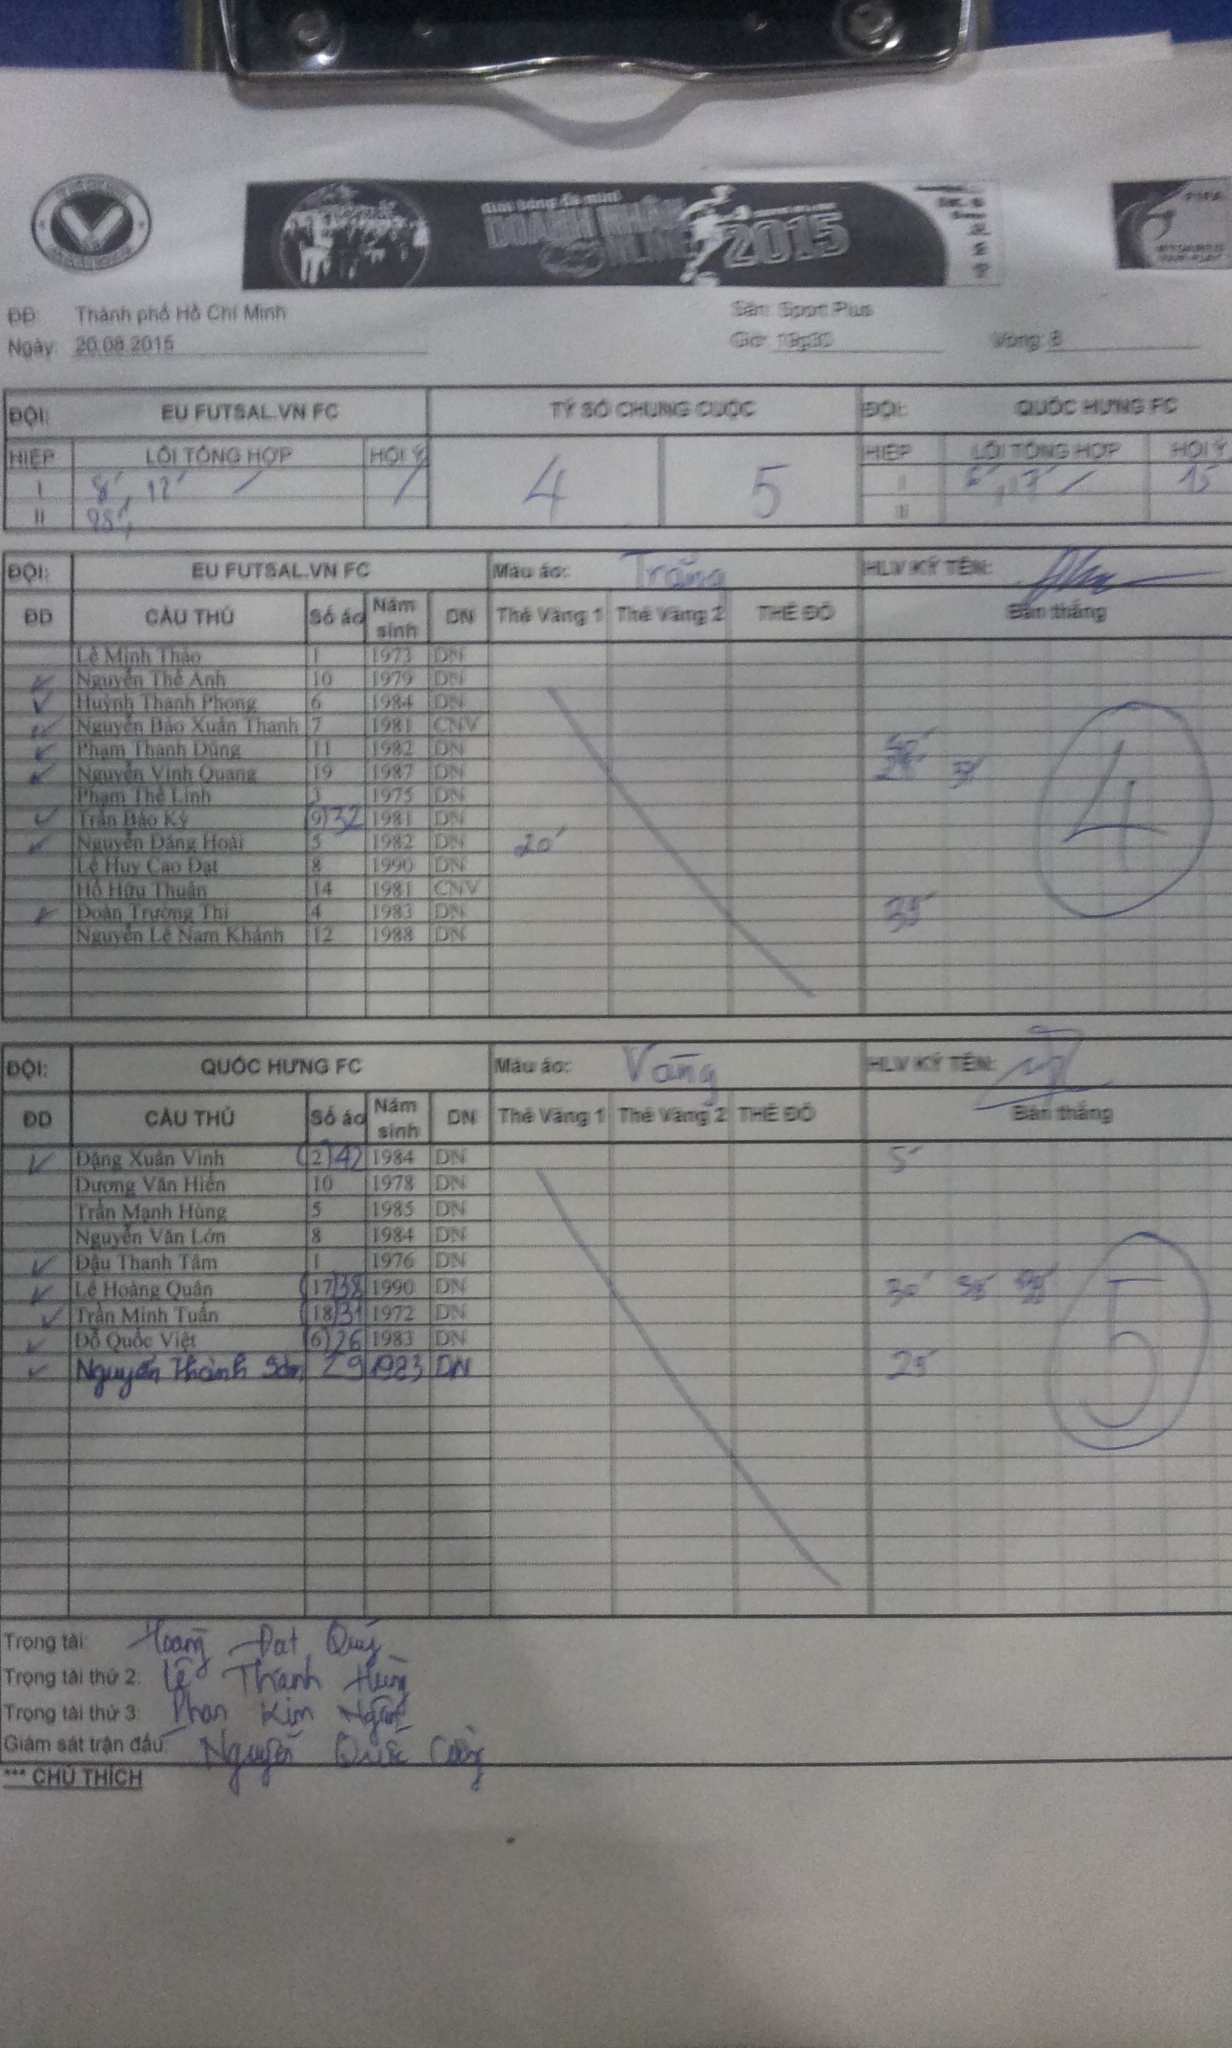 Giải bóng đá mini
DOANH NHÂN
2015
ĐĐ: Thành phố Hồ Chí Minh Sân: Sport Plus
Ngày: 20.08.2015 Giờ: Vòng:
ĐỘI: EU FUTSAL.VN FC TỶ SỐ CHUNG CUỘC ĐỘI: QUỐC HƯNG FC
HIỆP LỖI TỔNG HỢP HỘI Ý 4 5 HIỆP LỖI TỔNG HỢP HỘI Ý
I 8', 12' 17' 15
II 28',
ĐỘI: EU FUTSAL.VN FC Màu áo: Trắng HLV KÝ TÊN:
ĐD CẦU THỦ Số áo Năm sinh DN Thẻ Vàng 1 Thẻ Vàng 2 THẺ ĐỎ Bàn thắng
Lê Minh Thảo 1 1973 DN
Nguyễn Thế Anh 10 1979 DN
Huỳnh Thanh Phong 6 1984 DN
Nguyễn Bảo Xuân Thanh 7 1981 CNV
Phạm Thanh Dũng 11 1982 DN
Nguyễn Vinh Quang 19 1987 DN
Phạm Thế Linh 3 1975 DN
Trần Bảo Kỳ (9) 32 1981 DN
Nguyễn Đăng Hoài 5 1982 DN 20'
Lê Huy Cao Đạt 8 1990 DN
Hồ Hữu Thuần 14 1981 CNV
Đoàn Trường Thi 4 1983 DN 35'
Nguyễn Lê Nam Khánh 12 1988 DN
4
ĐỘI: QUỐC HƯNG FC Màu áo: Vàng HLV KÝ TÊN:
ĐD CẦU THỦ Số áo Năm sinh DN Thẻ Vàng 1 Thẻ Vàng 2 THẺ ĐỎ Bàn thắng
Đặng Xuân Vinh (2) 42 1984 DN 5'
Dương Văn Hiển 10 1978 DN
Trần Mạnh Hùng 5 1985 DN
Nguyễn Văn Lớn 8 1984 DN
Đậu Thanh Tâm 1 1976 DN
Lê Hoàng Quân (17) 38 1990 DN 30'
Trần Minh Tuấn (18) 31 1972 DN
Đỗ Quốc Việt (6) 26 1983 DN
Nguyễn Thành Sơn 29 1983 DN 25'
5
Trọng tài: Hoàng Đạt Quý
Trọng tài thứ 2: Lê Thanh Hùng
Trọng tài thứ 3: Phan Kim Ngân
Giám sát trận đấu: Nguyễn Quốc Cường
*** CHÚ THÍCH